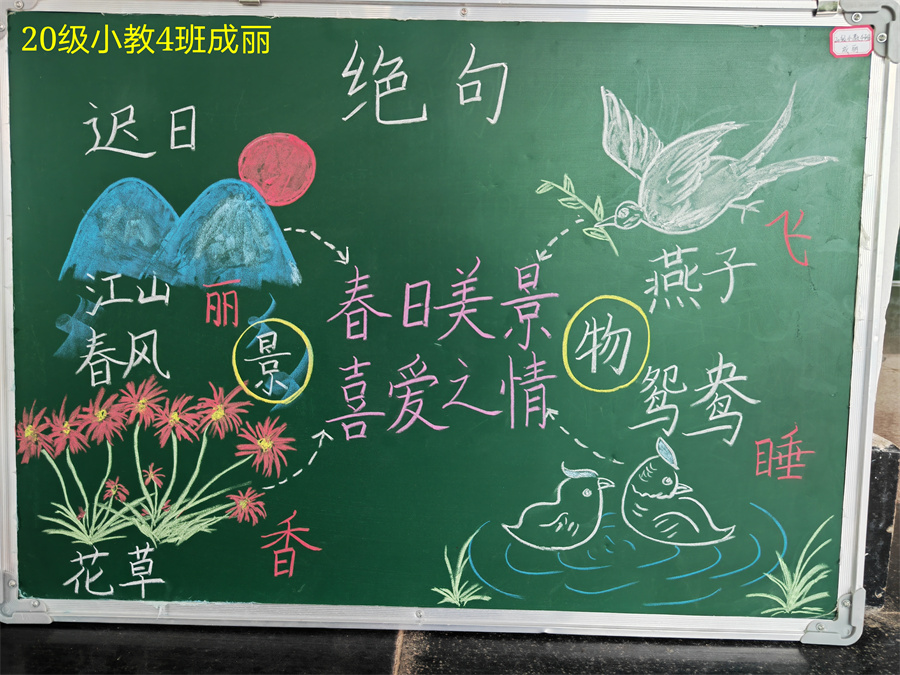 20级小教4班成丽
绝句
迟日
飞
燕子
江山
丽
春风
景
春日美景
喜爱之情
物
鸳鸯
睡
香
花草